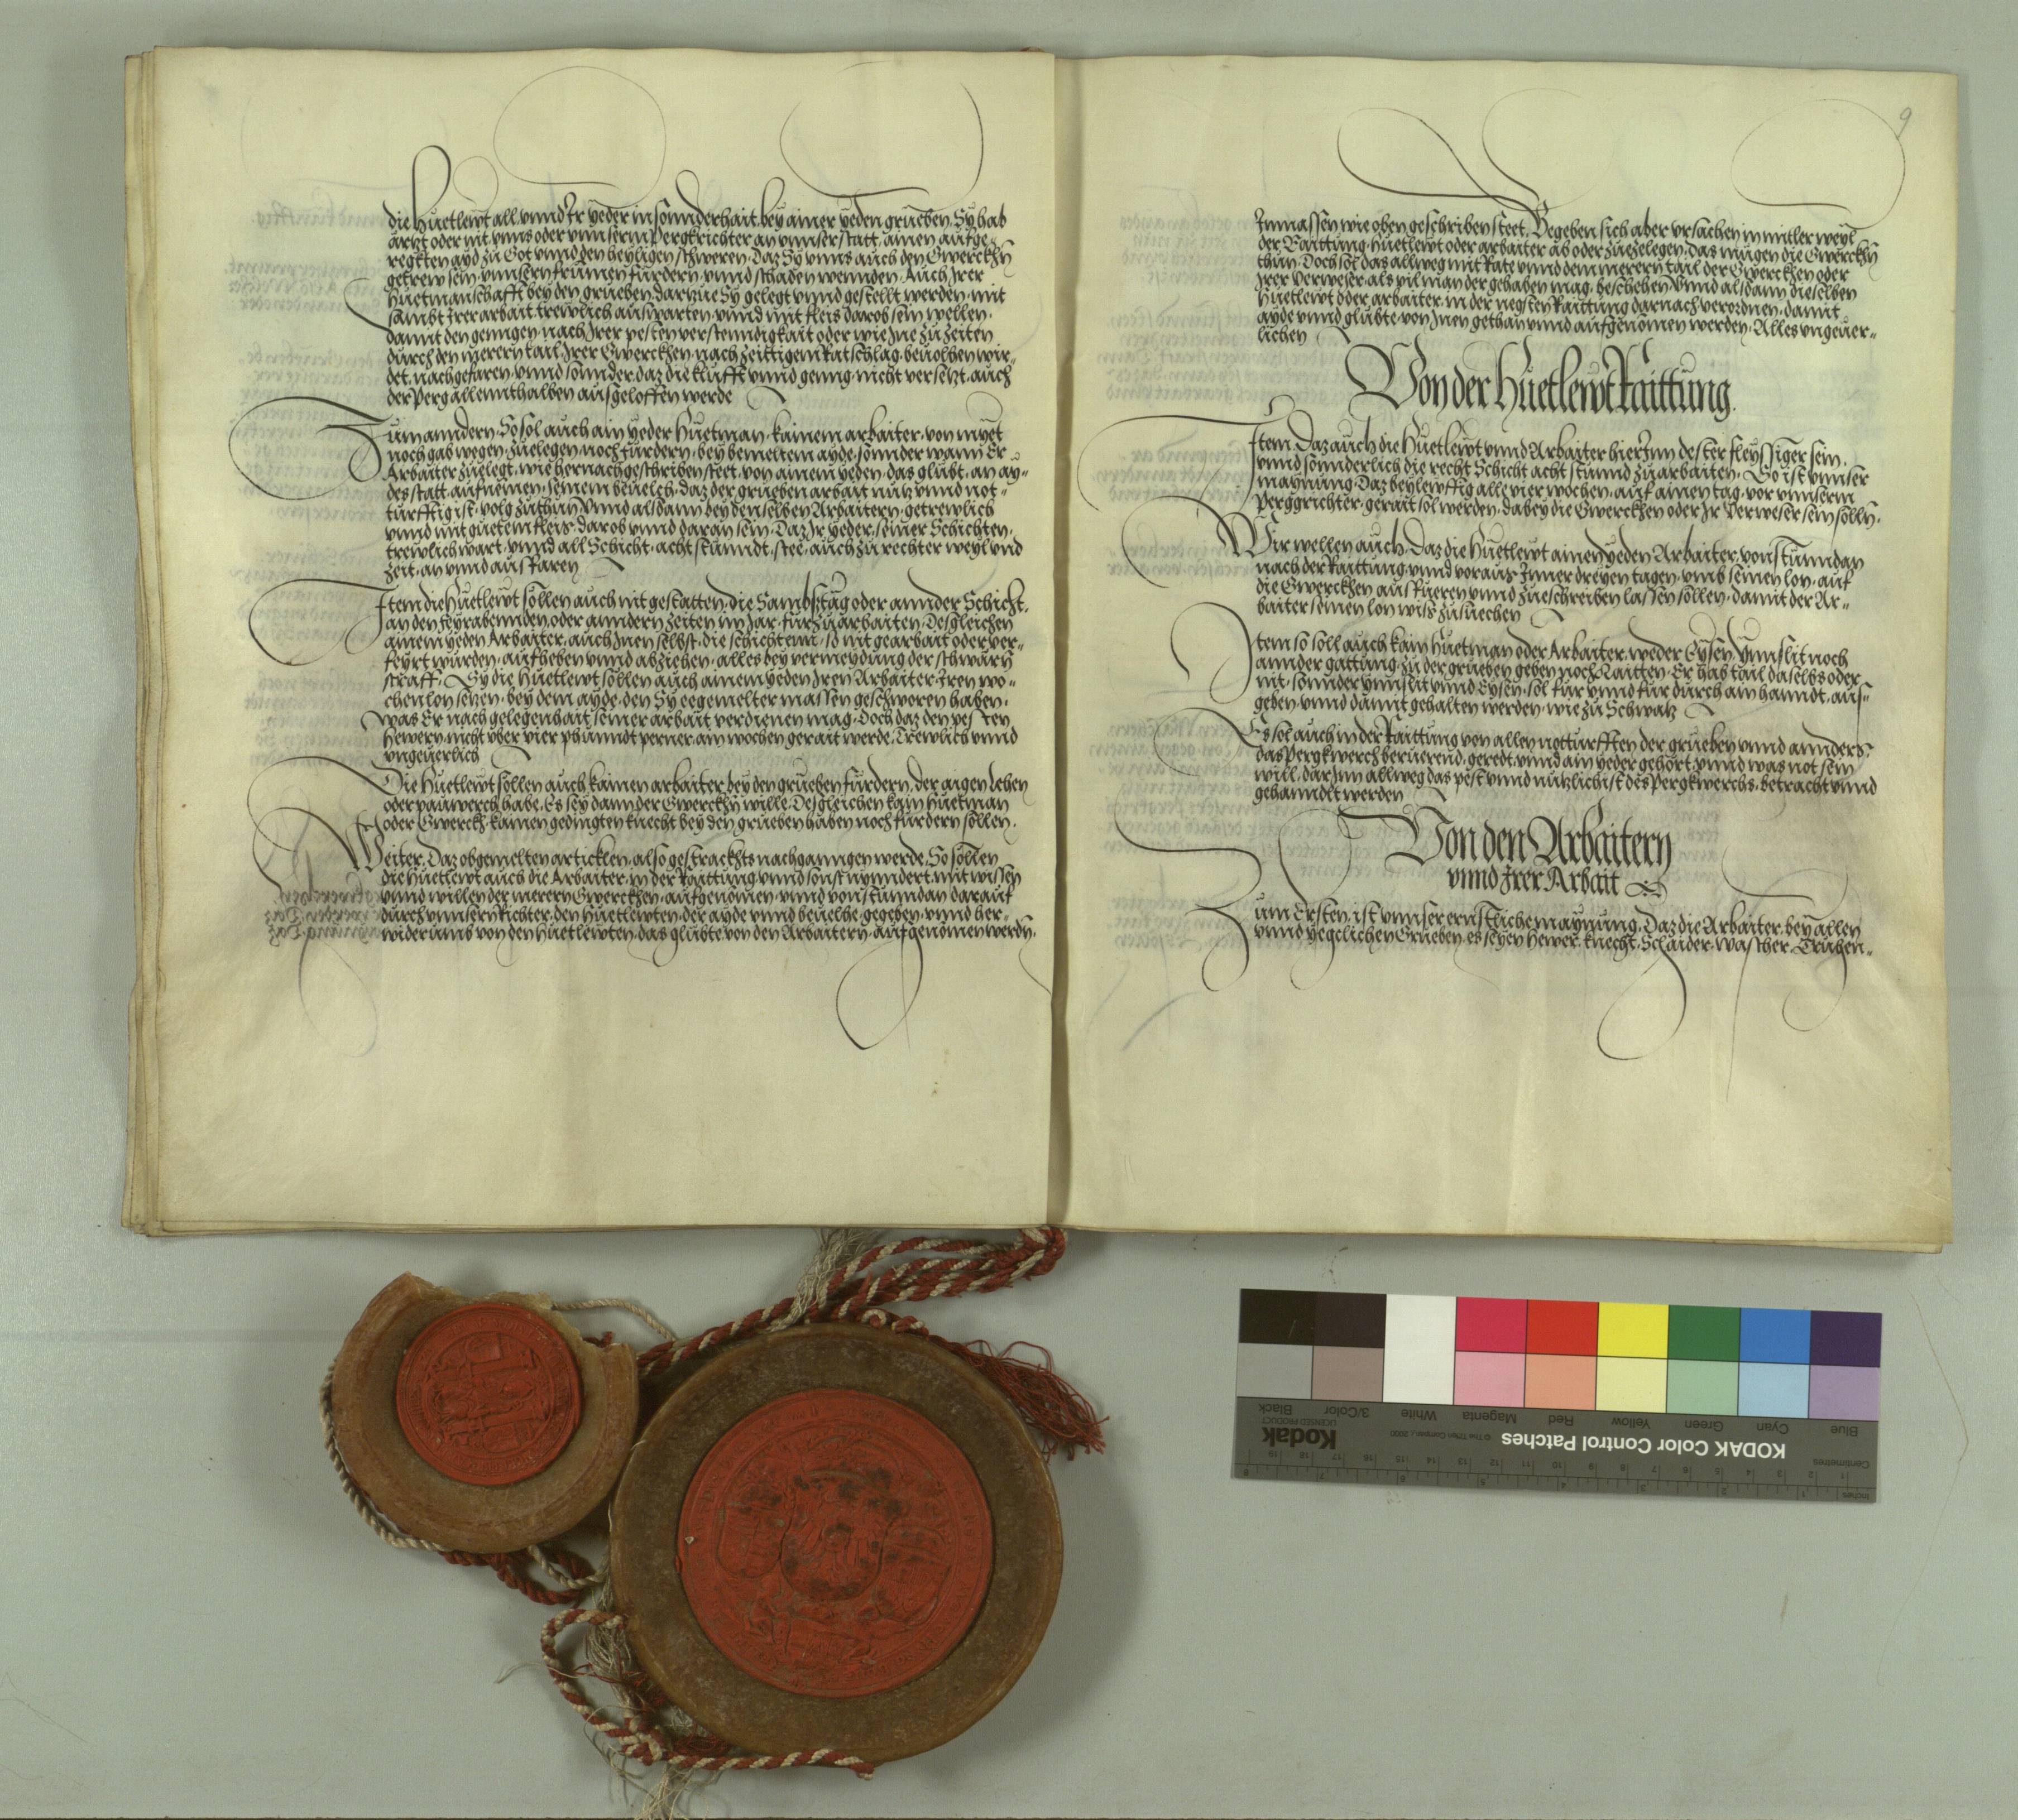 die Huetlewt all, vnnd Ir yeder in sonnderhait, bey ainer yeden grueben, Sy hab
ärtzt oder nit, vnns oder vnnserm Pergkrichter an vnnser statt, ainen aufge-
regkten ayd zu Got vnnd den heyligen schweren, Daz Sy vnns auch den Gwerckhn
getrew sein, vnnsern frumen fürdern, vnnd schaden wennden, Auch Irer
Huetmanschafft bey den grueben, dartzue Sy gelegt vnnd gestellt werden, mit
sambt Irer arbait, trewlich auswarten, vnnd mit fleis darob sein wellen,
damit den gennger, nach Irer pesten verstenndigkait oder wie Ine zu zeiten
durch den merern tail Irer Gwerckhen, nach zeittigem Ratschlag, beuolhen wir-
det, nachgefaren, vnnd sonnder, daz die klüfft vnnd genng, nicht versetzt, auch
der Perg allennthalben ausgeloffen werde
Zum anndern, So sol auch ain yeder Huetman, kainem arbaiter, von myet
noch gab wegen, zuelegen, noch fürdern, bey bemeltem ayde, sonnder wann Er
Arbaiter zuelegt, wie hernach geschriben steet, von ainem yeden, das glübt, an ay-
des statt, aufnemen, seinem beuelch, daz der grueben arbait nutz vnnd not-
turfftig ist, volg zuthun, Vnnd alsdann bey denselben Arbaitern, getrewlich
vnnd mit guetem fleis, darob vnnd daran sein, Daz Ir yeder, seiner Schichten,
trewlich wart, vnnd all Schicht, acht stunndt, stee, auch zu rechter weyl vnd
zeit, an vnnd ausfaren
Item die Huetlewt sollen auch nit gestatten, die Sambstag oder annder Schicht,
an den feyrabennden, oder anndern zeiten im Jar, für zuarbaiten, Desgleichen
ainem yeden Arbaiter, auch Inen selbst, die schichten, so nit gearbait oder ver-
feyrt würden, aufheben vnnd abziehen, alles bey vermeydung der schwärn
straff, Sy die Huetlewt sollen auch ainem yeden Iren Arbaiter, Iren wo-
chenlon setzen, bey dem ayde, den Sy eegemelter massen geschworen haben,
was Er nach gelegenhait, seiner arbait verdienen mag, Doch daz den pesten
Hewern, nicht über vier phunndt perner, ain wochen gerait werde, Trewlich vnnd
vngeuerlich
Die Huetlewt sollen auch kainen arbaiter, bey den grueben fürdern, der aigen Lehen
oder pauwerch habe, Es sey dann der Gwerckhn wille, Desgleichen kain Huetman
oder Gwerckh, kainen gedingten knecht bey den grueben haben noch fürdern sollen,
Weiter, Daz obgemelten articklen, also gestrackhts nachganngen werde, So sollen
die Huetlewt auch die Arbaiter, in der Raittung, vnnd sonst nynndert, mit wissen
vnnd willen der merern Gwerckhen, aufgenomen, vnnd von stunndan darauf
durch vnnsern Richter, den Huetlewten, der ayde vnnd beuelhe, gegeben, vnnd her-
widerumb von den Huetlewten, das glübte, von den Arbaitern, aufgenomen werdn,
9
Inmassen wie oben geschriben steet, Begeben sich aber vrsachen, in mitler weyl
der Raittung, Huetlewt oder arbaiter, ab oder zuezelegen, das mügen die Gwerckhn
thun, Doch sol das allweg mit Rate vnnd dem merern tail der Gwerckhen oder
Irer Verweser, als vil man der gehaben mag, beschehen, Vnnd alsdann dieselben
Huetlewt oder arbaiter, in der negsten Raittung darnach verordnen, damit,
ayde vnnd glübte, von Inen gethan vnnd aufgenomen werden, Alles vngeuer-
lichen
Von der Huetlewt Raittung.
Item, Daz auch die Huetlewt vnnd Arbaiter hierInn dester fleyssiger sein,
vnnd sonnderlich die recht Schicht acht stunnd zuarbaiten, So ist vnnser
maynung, Daz beylewffig alle vier wochen, auf ainen tag, vor vnnserm
Perggrichter, gerait sol werden, dabey die Gwerckhen oder Ir Verweser sein solln,
Wir wellen auch, Daz die Huetlewt ainen yeden Arbaiter, von stunndan
nach der Raittung, vnnd voraus Inner dreyen tagen, vmb seinen lon, auf
die Gwerckhen ausfueren vnnd zueschreiben lassen sollen, damit der Ar-
baiter seinen lon wiss zusuechen
Item so soll auch kain Huetman oder Arbaiter, weder Eysen, Ynnslit noch
annder gattung, zu der grueben geben noch Raitten, Er hab tail daselbs oder
nit, sonnder ynnslit vnnd Eysen, sol für vnnd für durch ain hanndt, aus-
geben, vnnd damit gehalten werden, wie zu Schwatz
Es sol auch in der Raittung von allen notturfften der grueben vnnd annders,
das Pergkwerch berüerend, geredt, vnnd ain yeder gehört, vnnd was not sein
will, darInn allweg das pest vnnd nützlichist des Pergkwerchs, betracht vnnd
gehanndlt werden
Von den Arbaitern
vnnd Irer Arbait
Zum Ersten, ist vnnser ernstliche maynung, Daz die Arbaiter, bey allen
vnnd yegclichen Grueben, es seyen Hewer, knecht, Schaider, Wascher, Truhen-
Kodak
LICENSED PRODUCT
KODAK Color Control Patches
© The Tiffen Company, 2000
Blue
Cyan
Green
Yellow
Red
Magenta
White
3/Color
Black
Centimetres
Inches